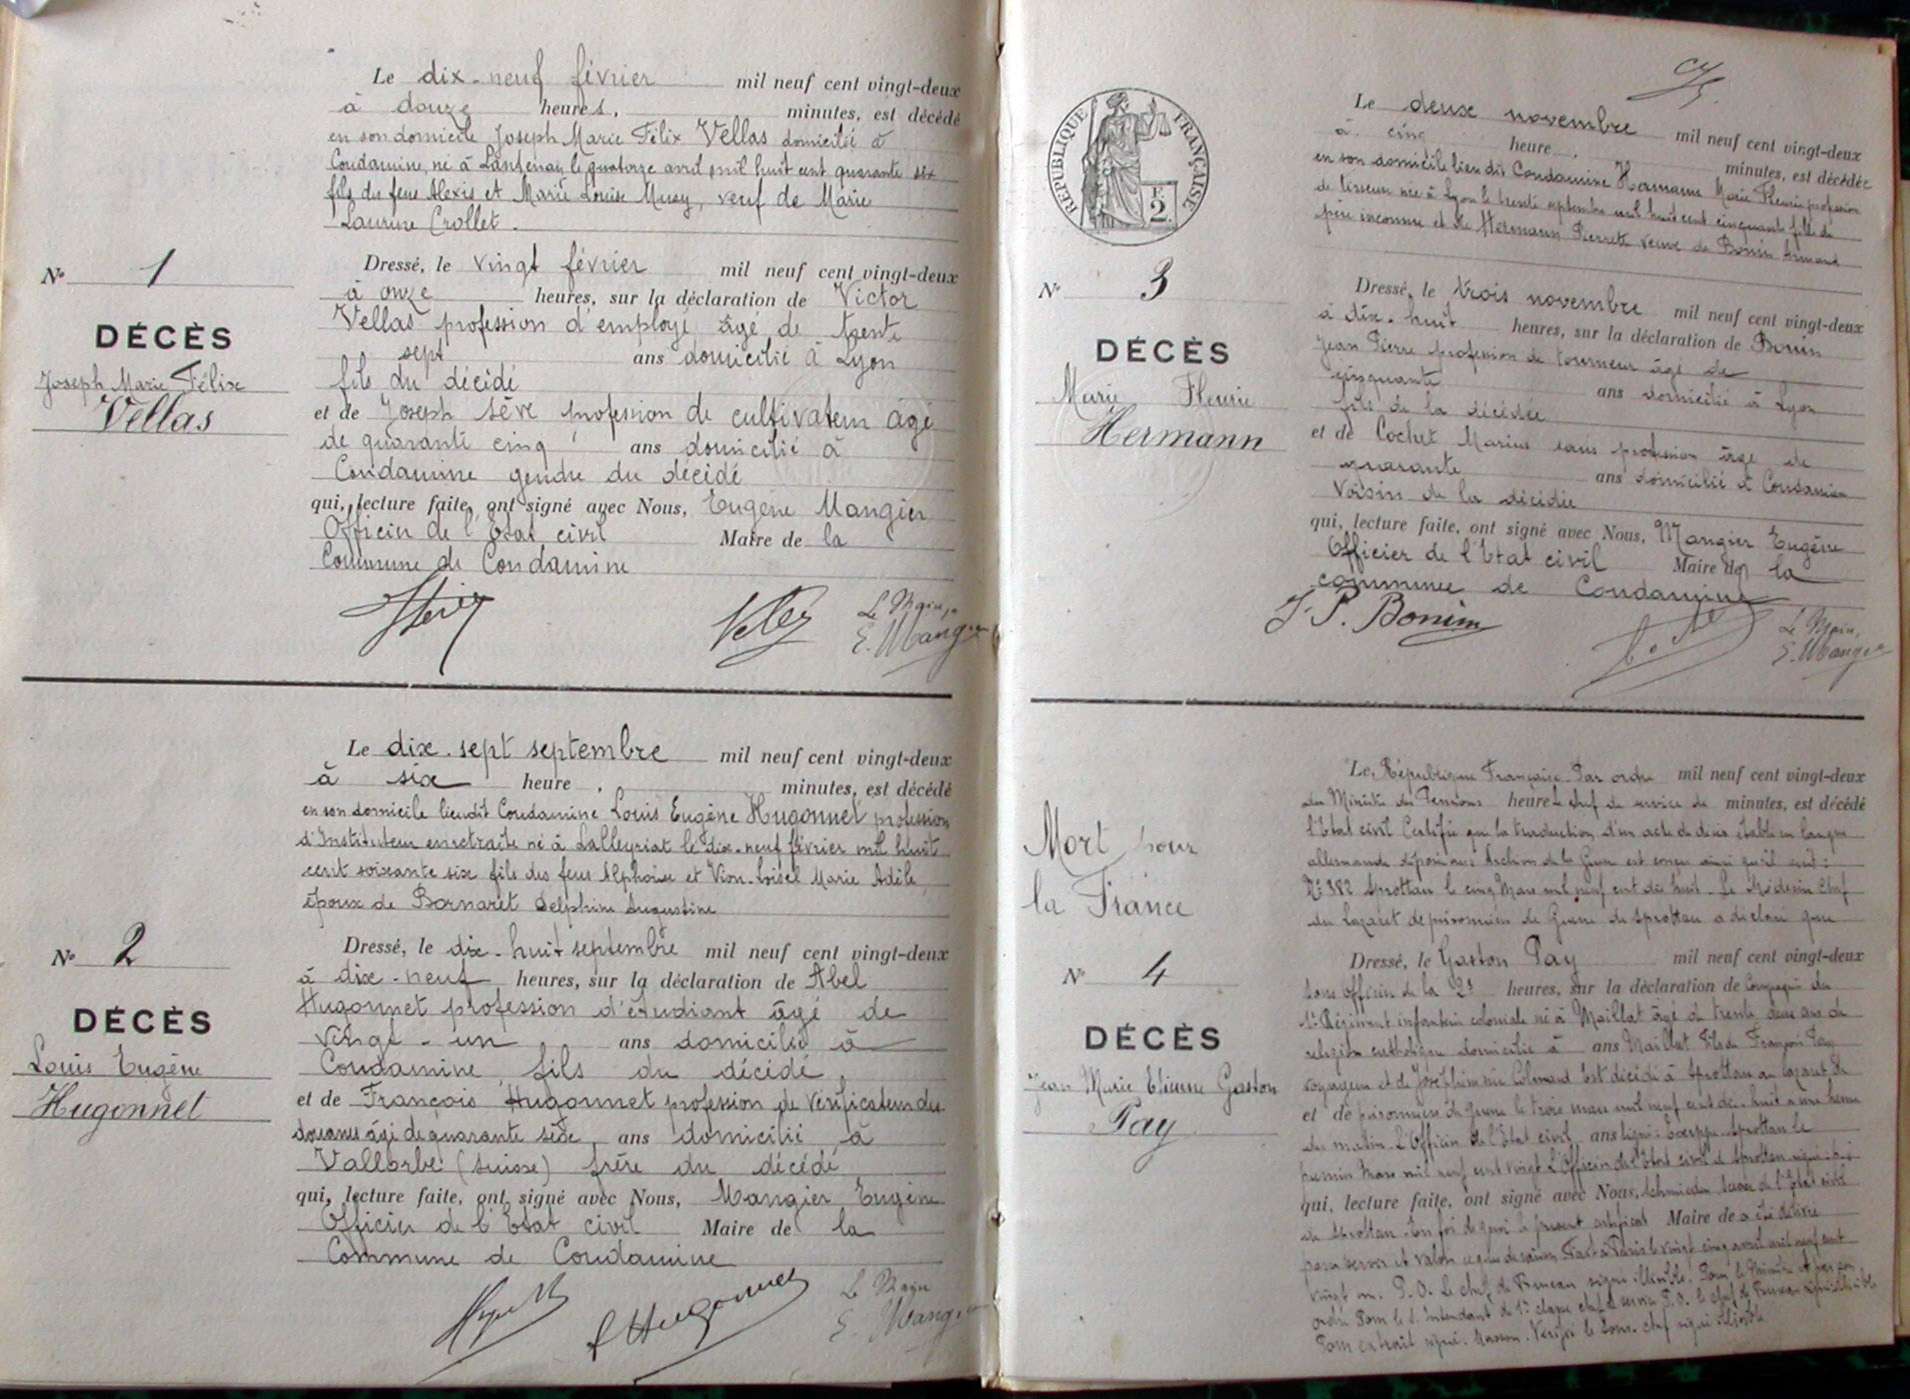 Le dix-neuf février mil neuf cent vingt-deux
à douze heures, minutes, est décédé
en son domicile Joseph Marie Félix Vellas domicilié à
Condamine, né à Lantenay le quatorze avril mil huit cent quarante six
fils de feus Alexis et Marie Louise Mussy, veuf de Marie
Laurine Crollet.
Nº 1
DÉCÈS
Joseph Marie Félix
Vellas
Dressé, le vingt février mil neuf cent vingt-deux
à onze heures, sur la déclaration de Victor
Vellas profession d'employé âgé de trente
sept ans domicilié à Lyon
fils du décédé
et de Joseph Sève profession de cultivateur âgé
de quarante cinq ans domicilié à
Condamine gendre du décédé
qui, lecture faite, ont signé avec Nous, Eugène Mangier
Officier de l'Etat civil Maire de la
Commune de Condamine
Le Maire,
E. Mangier
Le dix-sept septembre mil neuf cent vingt-deux
à six heure, minutes, est décédé
en son domicile lieudit Condamine Louis Eugène Hugonnet profession
d'Instituteur en retraite né à Lalleyriat le dix-neuf février mil huit
cent soixante six fils des feus Alphonse et Vion-Loisel Marie Adèle
époux de Bornarel Delphine Augustine
Nº 2
DÉCÈS
Louis Eugène
Hugonnet
Dressé, le dix-huit septembre mil neuf cent vingt-deux
à dix-neuf heures, sur la déclaration de Abel
Hugonnet profession d'étudiant âgé de
vingt-un ans domicilié à
Condamine, fils du décédé
et de François Hugonnet profession de Vérificateur des
douanes âgé de quarante seize ans domicilié à
Vallorbe (Suisse) frère du décédé
qui, lecture faite, ont signé avec Nous, Mangier Eugène
Officier de l'Etat civil Maire de la
Commune de Condamine
Hugonnet
Le Maire
E. Mangier
RÉPUBLIQUE FRANÇAISE
F.
2
Le deux novembre mil neuf cent vingt-deux
à cinq heure, minutes, est décédée
en son domicile lieu dit Condamine Hermann Marie Fleurie profession
de tisseur née à Lyon le trente septembre mil huit cent cinquante fille de
père inconnu et de Hermann Pierrette veuve de Bonin Armand
Nº 3
DÉCÈS
Marie Fleurie
Hermann
Dressé, le trois novembre mil neuf cent vingt-deux
à dix-huit heures, sur la déclaration de Bonin
Jean Pierre profession de tourneur âgé de
cinquante ans domicilié à Lyon
fils de la décédée
et de Cochet Marius sans profession âgé de
quarante ans domicilié à Condamine
voisin de la décédée
qui, lecture faite, ont signé avec Nous, Mangier Eugène
Officier de l'Etat civil Maire de la
commune de Condamine
J. P. Bonin
Le Maire,
E. Mangier
Mort pour
la France
Le République Française. Par ordre mil neuf cent vingt-deux
du Ministre des Pensions heure le chef de service de minutes, est décédé
l'Etat civil Certifie que la traduction d'un acte de décès établi en langue
allemande déposé aux Archives de la Guerre est conçu ainsi qu'il suit :
Nº 382 Sprottau le cinq Mars mil neuf cent dix huit. Le Médecin Chef
du Lazaret de prisonniers de Guerre de Sprottau a déclaré que
Nº 4
DÉCÈS
Jean Marie Etienne Gaston
Pay
Dressé, le Gaston Pay mil neuf cent vingt-deux
sous officier de la 2e heures, sur la déclaration de Compagnie du
1er Régiment infanterie coloniale né à Maillat âgé de trente deux ans de
religion catholique domicilié à ans Maillat fils de François Pay
voyageur et de Joséphine née Colomand est décédé à Sprottau au lazaret de
et de prisonniers de guerre le trois mars mil neuf cent dix-huit à une heure
du matin. L'Officier de l'Etat civil, ans signé : Sprottau le
premier Mars mil neuf cent vingt L'Officier de l'Etat civil de Sprottau signé :
qui, lecture faite, ont signé avec Nous, de l'Etat civil
de Sprottau. En foi de quoi le présent certificat Maire de a été délivré
pour servir et valoir ce que de raison. Fait à Paris le vingt cinq avril mil neuf cent
vingt un. P.O. Le chef de Bureau signé illisible. Pour le Ministre et par son
ordre Pour le s. Intendant de 1re classe chef de service P.O. le chef de Bureau signé illisible
Pour extrait signé : Masson. Vérifié le Sous-chef signé illisible